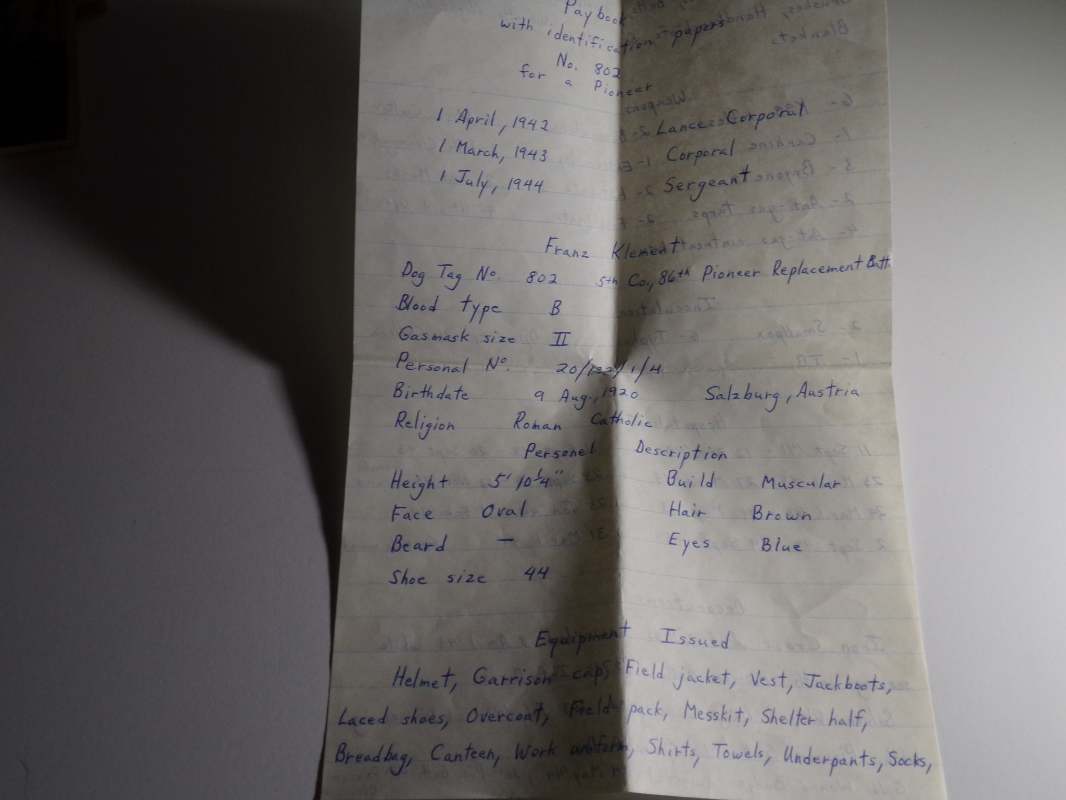 Paybook
with identification papers
No. 802
for a Pioneer
1 April, 1942 Lance Corporal
1 March, 1943 Corporal
1 July, 1944 Sergeant
Franz Klement
Dog Tag No. 802 5th Co, 86th Pioneer Replacement Batt.
Blood type B
Gasmask size II
Personal No. 20/122/1/4
Birthdate 9 Aug., 1920 Salzburg, Austria
Religion Roman Catholic
Personel Description
Height 5' 10 1/4" Build Muscular
Face Oval Hair Brown
Beard — Eyes Blue
Shoe size 44
Equipment Issued
Helmet, Garrison cap, Field jacket, Vest, Jackboots,
Laced shoes, Overcoat, Field pack, Messkit, Shelter half,
Breadbag, Canteen, Work uniform, Shirts, Towels, Underpants, Socks,